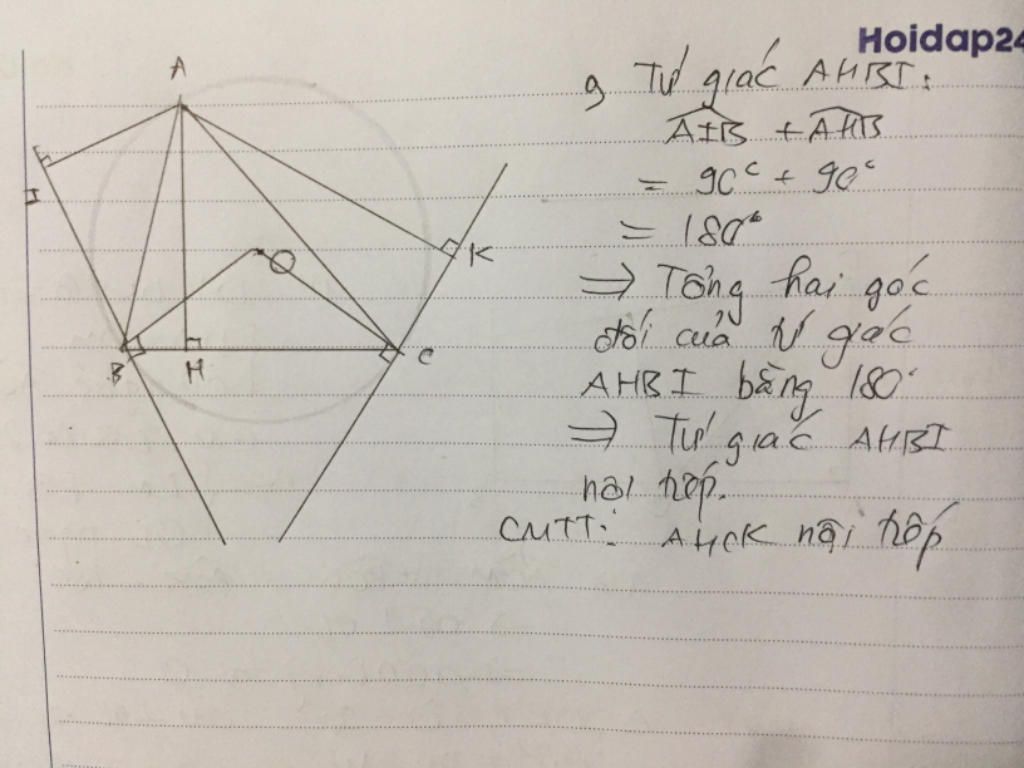 Hoidap24
A
I
O
K
B
H
C
a, Tứ giác AHBI:
AIB + AHB
= 90° + 90°
= 180°
=> Tổng hai góc
đối của tứ giác
AHBI bằng 180°
=> Tứ giác AHBI
nội tiếp.
CMTT: AHCK nội tiếp